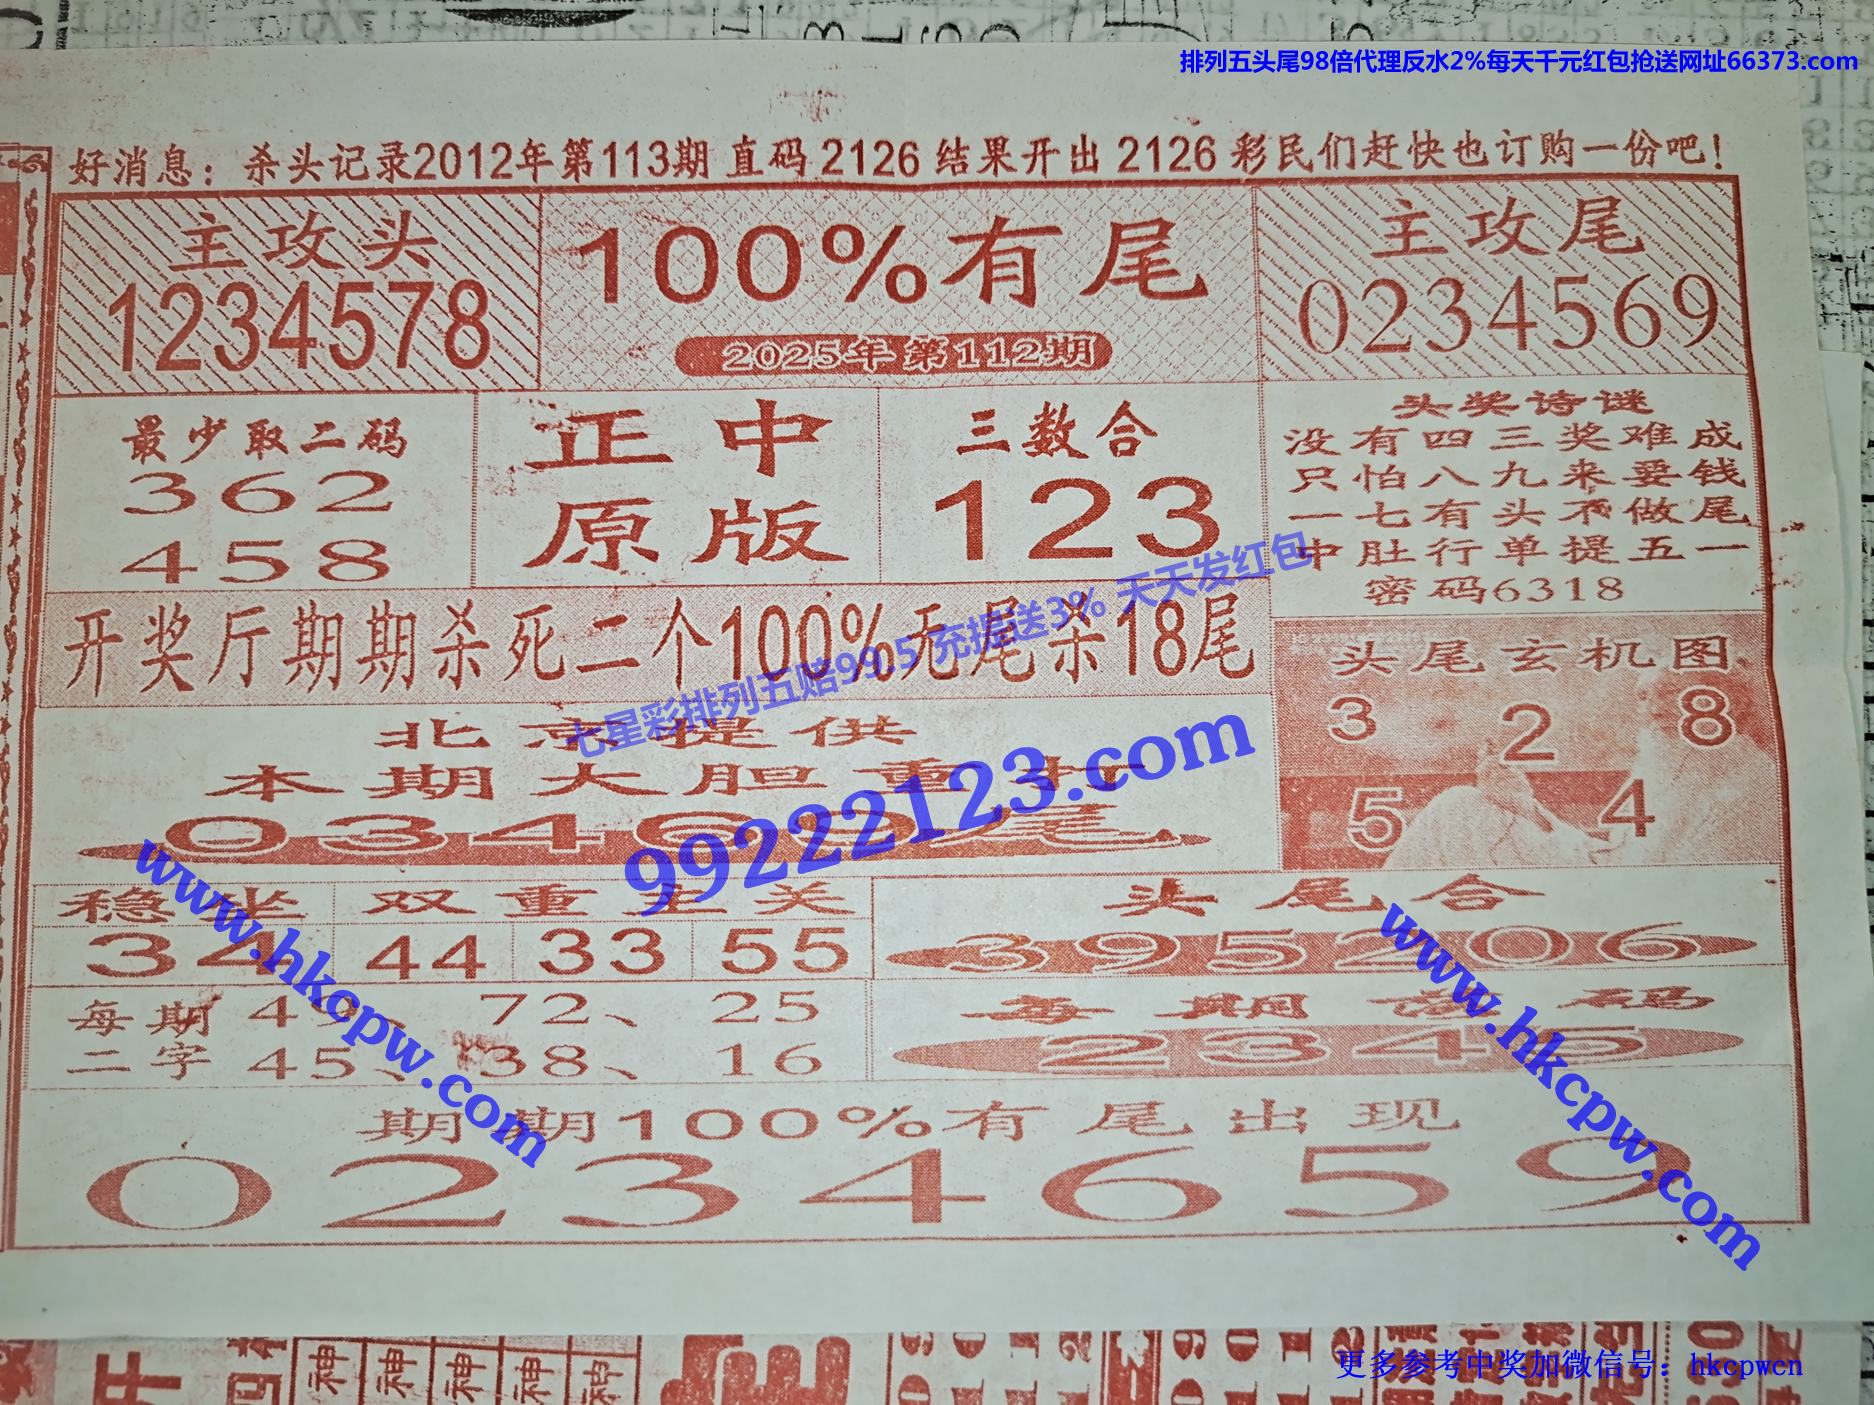 排列五头尾98倍代理反水2%每天千元红包抢送网址66373.com
好消息：杀头记录2012年第113期 直码 2126 结果开出 2126 彩民们赶快也订购一份吧！
主攻头
1234578
100%有尾
2025年第112期
主攻尾
0234569
最少取二码
362
458
正中
原版
三数合
123
头奖诗谜
没有四三奖难成
只怕八九来要钱
一七有头不做尾
中肚行单提五一
密码6318
开奖厅期期杀死二个100%无尾杀18尾
七星彩排列五赔99.5 充提送3% 天天发红包
头尾玄机图
3 2 8
5 4
北京提供
本期大胆重
0346 尾
99222123.com
www.hkcpw.com
稳坐
34
双重主关
44 33 55
头尾合
395206
www.hkcpw.com
每期
二字
49、72、25
45、38、16
每期 码
2345
期期100%有尾出现
0234659
开
神 神 神 神 神
更多参考中奖加微信号：hkcpwcn